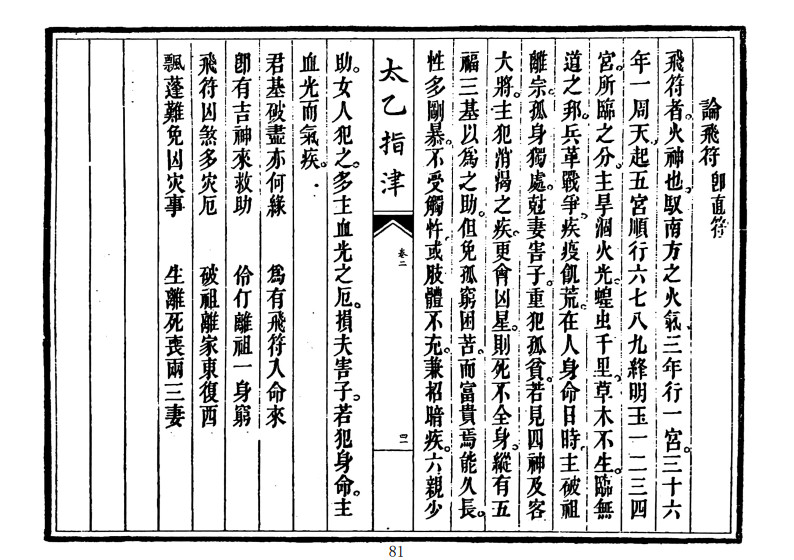 論飛符 卽直符
飛符者。火神也。馭南方之火氣。三年行一宮。三十六
年一周天。起五宮順行六七八九終明玉一二三四
宮。所臨之分。主旱涸火光。蝗虫千里。草木不生。臨無
道之邦。兵革戰爭。疾疫飢荒。在人身命日時。主破祖
離宗。孤身獨處。尅妻害子。重犯孤貧。若見四神及客
大將。主犯消渴之疾。更會凶星。則死不全身。縱有五
福三基以爲之助。但免孤窮困苦。而富貴焉能久長。
性多剛暴。不受觸忤。或肢體不充。兼招暗疾。六親少
太乙指津
卷二
四一
助。女人犯之。多主血光之厄。損夫害子。若犯身命。主
血光而氣疾。
君基破盡亦何緣 爲有飛符入命來
卽有吉神來救助 伶仃離祖一身窮
飛符凶煞多灾厄 破祖離家東復西
飄蓬難免凶灾事 生離死喪兩三妻
81